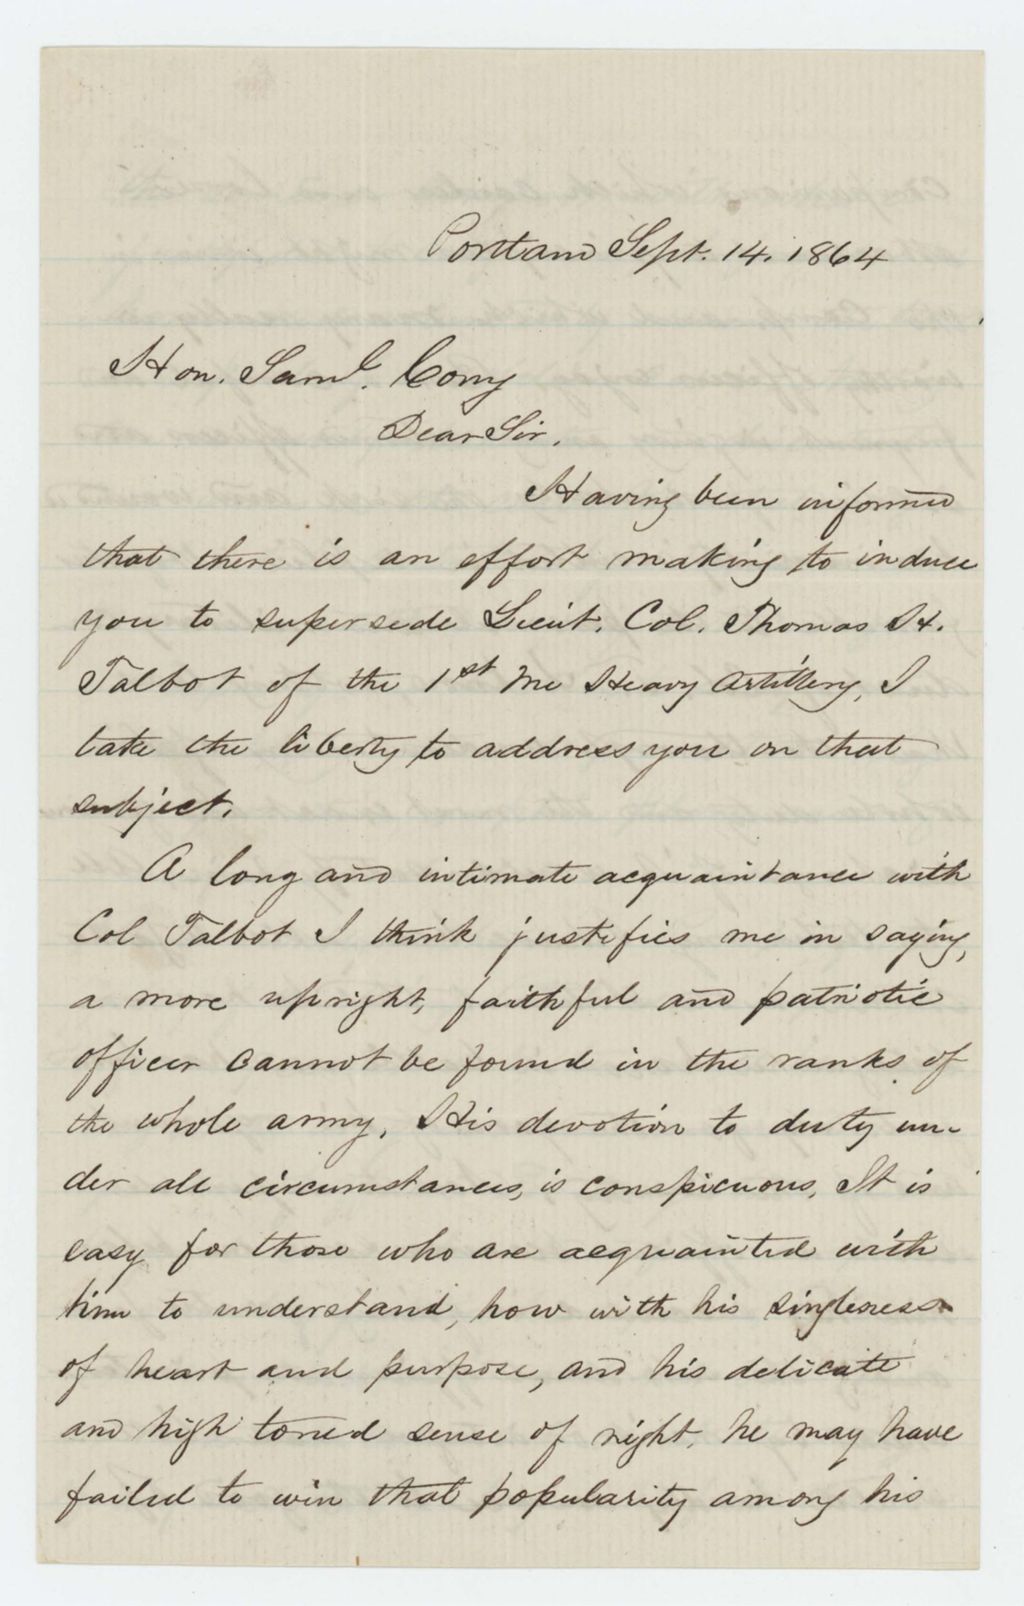 Portland Sept. 14. 1864
Hon. Saml. Cony
Dear Sir,
Having been informed
that there is an effort making to induce
you to supersede Lieut. Col. Thomas H.
Talbot of the 1st Me Heavy Artillery, I
take the liberty to address you on that
subject.
A long and intimate acquaintance with
Col Talbot I think justifies me in saying,
a more upright, faithful and patriotic
officer cannot be found in the ranks of
the whole army. His devotion to duty un-
der all circumstances, is conspicuous. It is
easy for those who are acquainted with
him to understand, how with his singleness
of heart and purpose, and his delicate
and high toned sense of right, he may have
failed to win that popularity among his